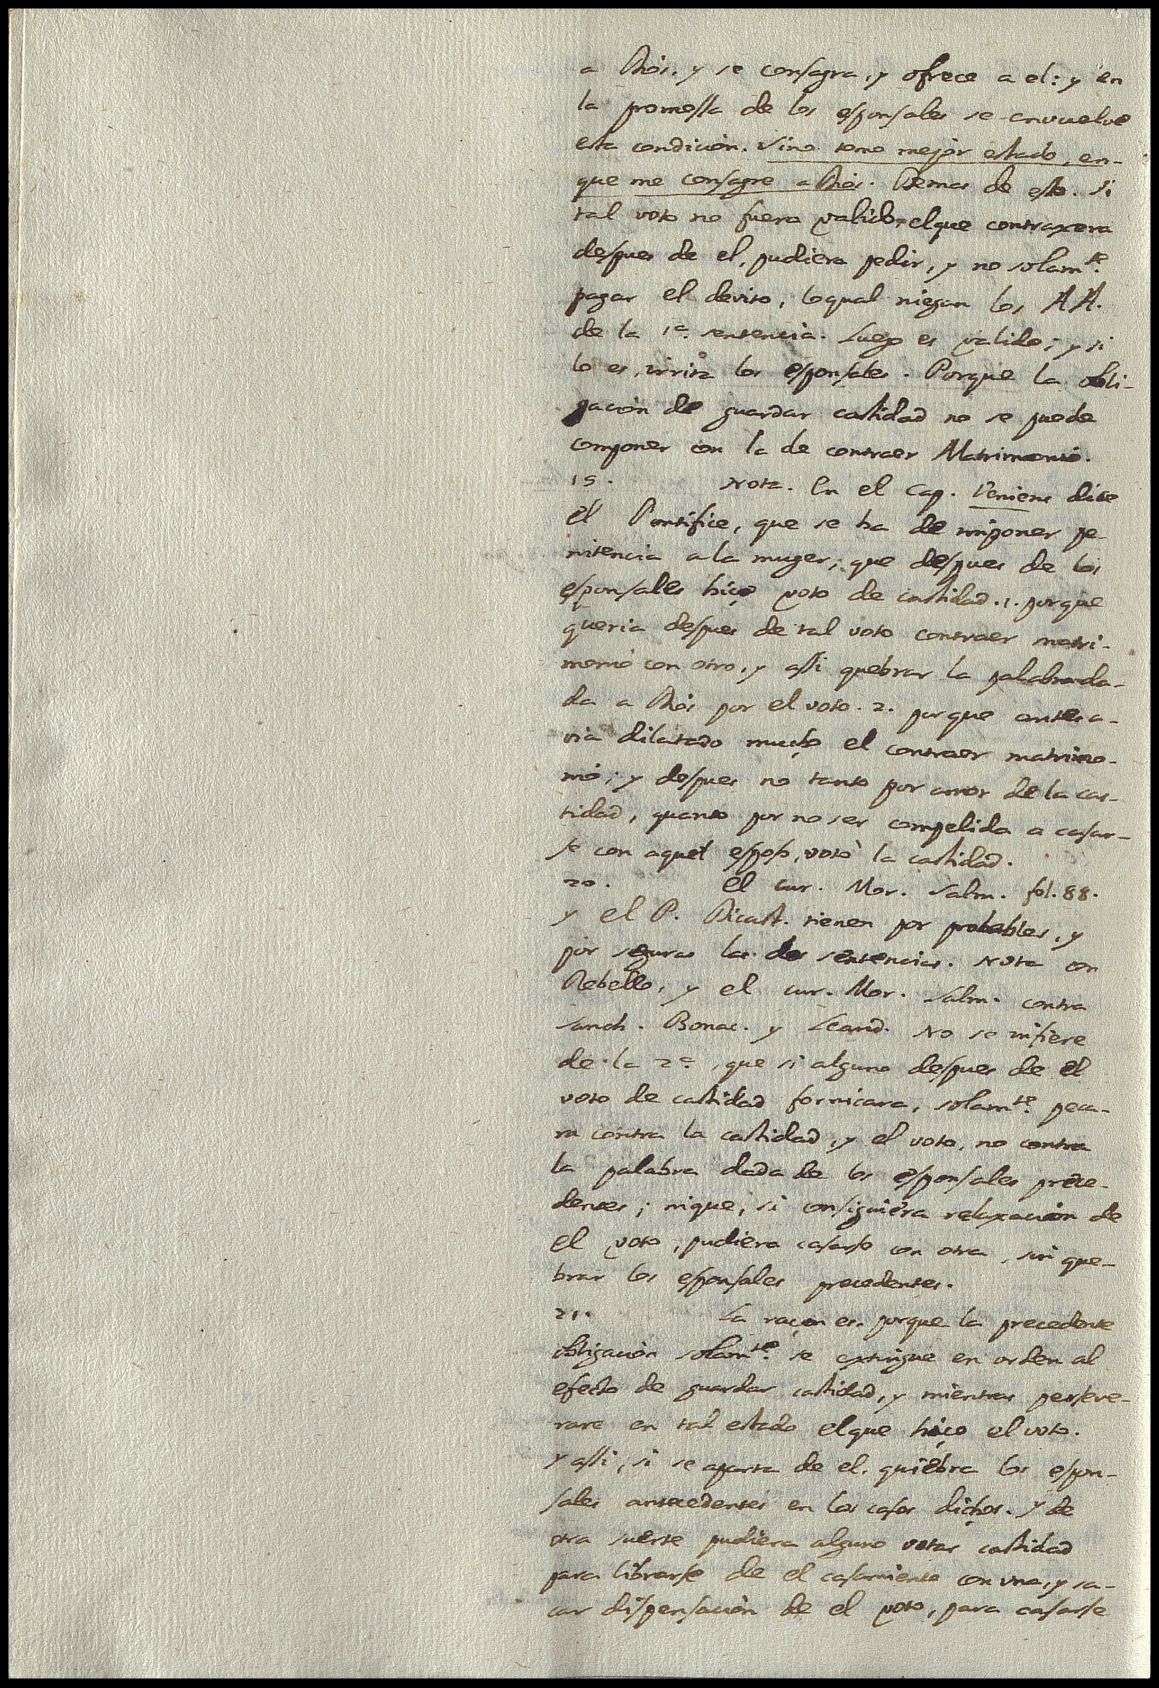 a Dios. y se consagra, y ofrece a el: y en
la promessa de los esponsales se envuelve
esta condicion. Sino tomo mejor estado, en-
que me consagre a Dios. Demas de esto. Si
tal voto no fuera valido, elque contraxera
despues de el, pudiera pedir, y no solam.te
pagar el devito, loqual niegan los AA.
de la 1a. sentencia. Luego es valido; y si
lo es, irrita los esponsales. Porque la obli-
gacion de guardar castidad no se puede
componer con la de contraer Matrimonio.
19. Nota. En el Cap. Veniens dice
el Pontifice, que se ha de imponer pe-
nitencia a la muger, que despues de los
esponsales hiço voto de castidad. 1. porque
queria despues de tal voto contraer matri-
monio con otro, y assi quebrar la palabra da-
da a Dios por el voto. 2. porque antes a-
via dilatado mucho el contraer matrimo-
nio; y despues no tanto por amor de la cas-
tidad, quanto por no ser compelida a casar-
se con aquel esposo, votò la castidad.
20. El Cur. Mor. Salm. fol. 88.
y el P. Dicast. tienen por probables, y
por seguras las dos sentencias. Nota con
Rebello, y el Cur. Mor. Salm. contra
Sanch. Bonac. y Leand. No se infiere
de la 2a. que si alguno despues de el
voto de castidad fornicara, solam.te peca-
ra contra la castidad, y el voto, no contra
la palabra dada de los esponsales prece-
dentes; nique, si consiguiera relaxacion de
el voto, pudiera casarse con otra, sin que-
brar los esponsales precedentes.
21. La raçon es. porque la precedente
obligacion solam.te se extingue en orden al
efecto de guardar castidad, y mientras perseve-
rare en tal estado elque hiço el voto.
y assi, si se aparta de el, quiebra los espon-
sales antecedentes en los casos dichos. y de
otra suerte pudiera alguno votar castidad
para librarse de el casamiento con una, y sa-
car dispensacion de el voto, para casarse